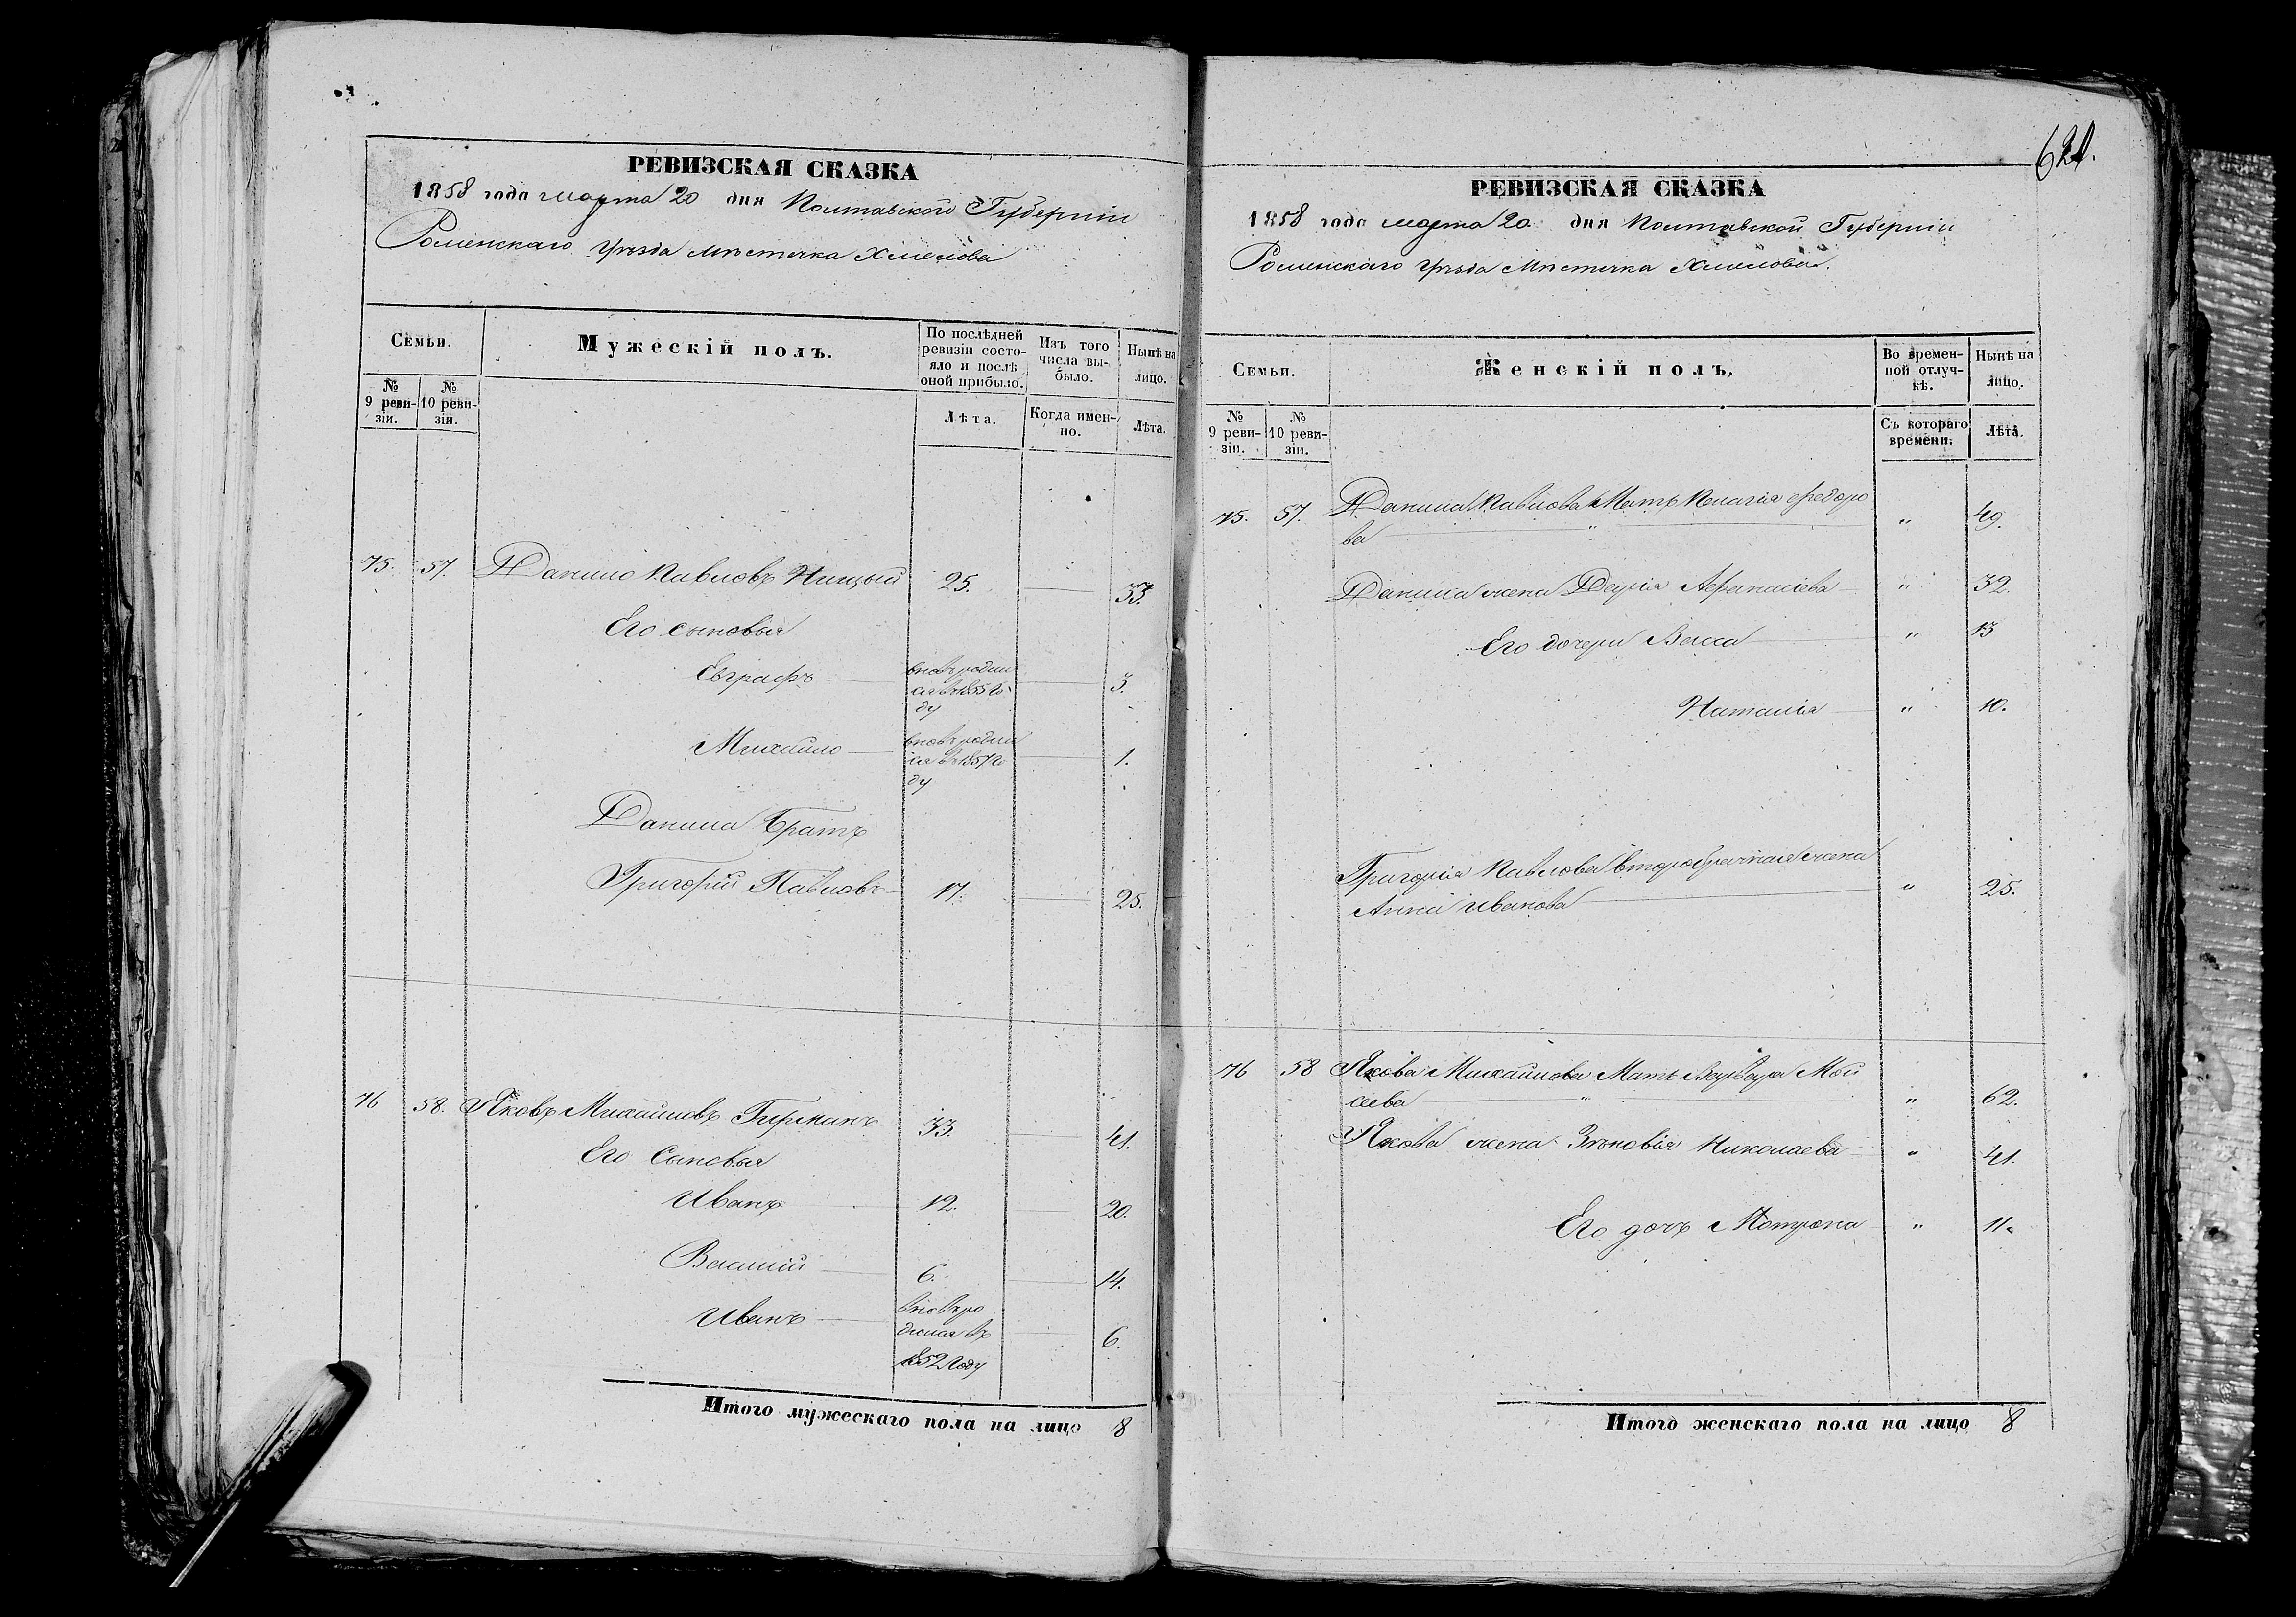 РЕВИЗСКАЯ СКАЗКА
1858 года марта 20 дня Полтавской Губерніи
Роменскаго Уѣзда Мѣстечка Хмелова
Семьи.
Мужескій полъ.
По послѣдней ревизіи состояло и послѣ оной прибыло.
Изъ того числа выбыло.
Нынѣ на лицо.
№ 9 ревизіи.
№ 10 ревизіи.
Лѣта.
Когда именно.
Лѣта.
75. 57. Данило Павловъ 25. 33.
Его сыновья
Евграфъ вновь родил
ся въ 1855 го 3.
ду
Михайло вновь родил
ся въ 1857 го 1.
ду
Данила Братъ
Григорій Павловъ 17. 25.
76 58. Яковъ Михайловъ Гирманъ 33. 41.
Его Сыновья
Иванъ 12. 20.
Василій 6. 14.
Иванъ вновь ро
дился въ 6.
1852 году
Итого мужескаго пола на лицо 8
621.
РЕВИЗСКАЯ СКАЗКА
1858 года марта 20 дня Полтавской Губерніи
Роменскаго Уѣзда Мѣстечка Хмелова.
Семьи.
Женскій полъ.
Во временной отлучкѣ.
Нынѣ на лицо.
№ 9 ревизіи.
№ 10 ревизіи.
Съ котораго времени.
Лѣта.
75. 57. Данила Павлова Мать Пелагія Федоро
ва " " 49.
Данила жена Дарія Афанасіева " 32.
Его дочери Васса " 13
Наталія " 10.
Григорія Павлова второбрачная жена
Анна Иванова " 25.
76 58 Якова Михайлова Мать Варвара Мой
сеева " " 62.
Якова жена Зѣновія Николаева " 41.
Его дочь Мотрона " 11.
Итого женскаго пола на лицо 8